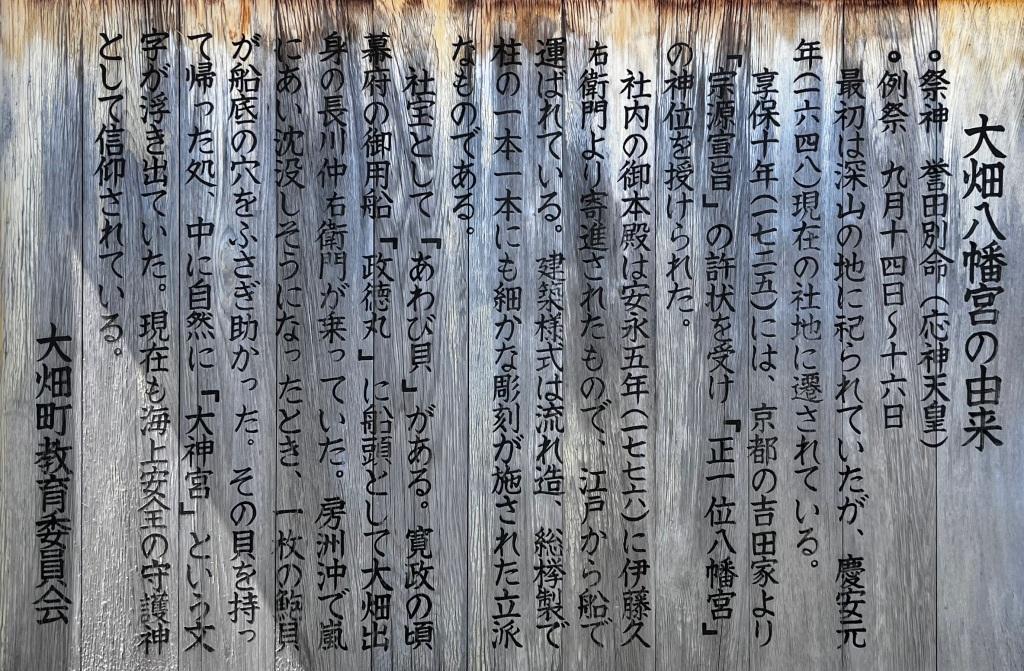 大畑八幡宮の由来
⚬祭神　誉田別命（応神天皇）
⚬例祭　九月十四日～十六日
最初は深山の地に祀られていたが、慶安元
年（一六四八）現在の社地に遷されている。
享保十年（一七二五）には、京都の吉田家より
『宗源宣旨』の許状を受け『正一位八幡宮』
の神位を授けられた。
社内の御本殿は安永五年（一七七六）に伊藤久
右衛門より寄進されたもので、江戸から船で
運ばれている。建築様式は流れ造、総欅製で
柱の一本一本にも細かな彫刻が施された立派
なものである。
社宝として『あわび貝』がある。寛政の頃
幕府の御用船『政徳丸』に船頭として大畑出
身の長川仲右衛門が乗っていた。房洲沖で嵐
にあい沈没しそうになったとき、一枚の鮑貝
が船底の穴をふさぎ助かった。その貝を持っ
て帰った処、中に自然に『大神宮』という文
字が浮き出ていた。現在も海上安全の守護神
として信仰されている。
大畑町教育委員会